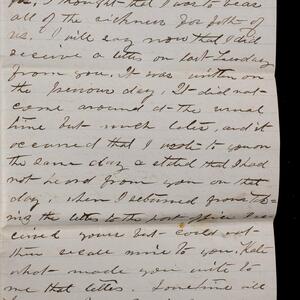 you, I thought that I was to bear
all of the sickness for both of
us. I will say now that I did
receive a letter on last Tuesday
from you. It was written on
the previous day, It did not
come around at the usual
time but much later, and it
occurred that I wrote to you on
the same day & stated that I had
not heard from you on that
day; when I returned from ta-
king the letter to the post office I re-
ceived yours but could not
then secure mine to you. Kate
what made you write to
me that letter. Sometime